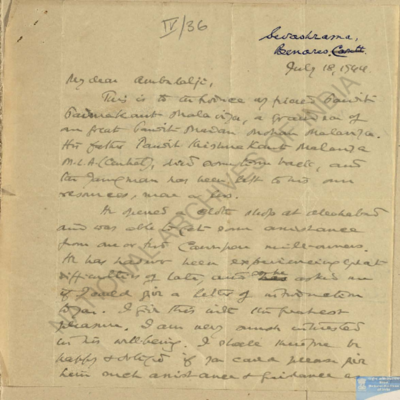 IV/36
Sevashrama,
Benares, Cantt.
July 18, 1944
My dear Ambalalji,
This is to introduce to you Pandit
Padmakant Malaviya, a grandson of
our great Pandit Madan Mohan Malaviya.
His father Pandit Krishnakant Malaviya
M.L.A. (Central), died some time back, and
the young man has been left to his own
resources, more or less.
He opened a cloth shop at Allahabad
and was able to get some assistance
from one or two Cawnpore mill-owners.
He has however been experiencing great
difficulties of late, and he asked me
if I could give a letter of introduction
to you. I give this with the greatest
pleasure. I am very much interested
in his well-being. I shall therefore be
happy & obliged if you could please give
him such assistance & guidance as
NATIONAL ARCHIVES INDIA